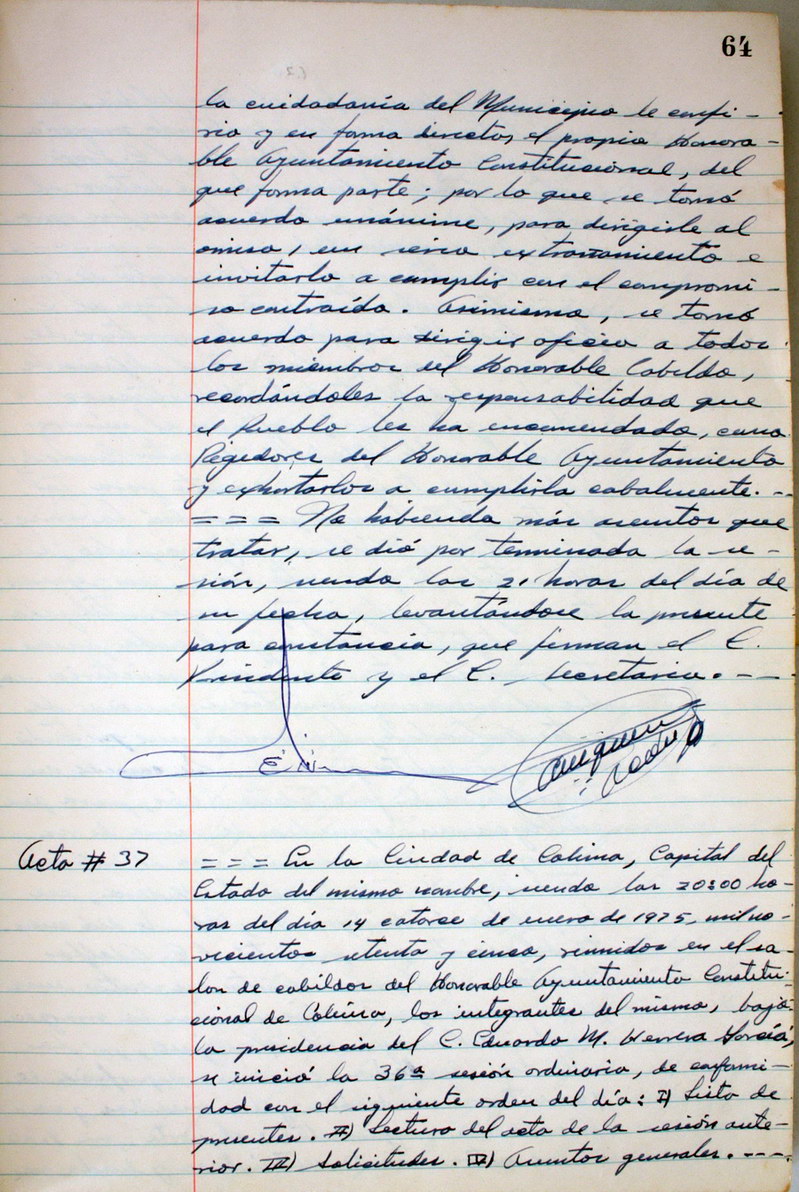 64
la cuidadanía del Municipio le confi-
rio y en forma directos el propio Honora-
ble Ayuntamiento Constitucional, del
que forma parte; por lo que se tomó
acuerdo unánime, para dirigirle al
omiso, un serio extrañamiento e
invitarlo a cumplir con el compromi-
so contraído. Asimismo, se tomó
acuerdo para dirigir oficio a todos
los miembros del Honorable Cabildo,
recordándoles la responsabilidad que
el Pueblo les ha encomendado, como
Regidores del Honorable Ayuntamiento
y exhortarlos a cumplirla cabalmente. --
=== No habiendo más asuntos que
tratar, se dió por terminada la se-
sión, siendo las 21 horas del día de
su fecha, levantándose la presente
para constancia, que firman el C.
Presidente y el C. Secretario. ---
Acta # 37
=== En la Ciudad de Colima, Capital del
Estado del mismo nombre, siendo las 20:00 ho-
ras del día 14 catorce de enero de 1975, mil no-
vecientos setenta y cinco, reunidos en el sa-
lón de cabildos del Honorable Ayuntamiento Constitu-
cional de Colima, los integrantes del mismo, bajo
la presidencia del C. Eduardo M. Herrera García,
se inició la 36ª sesión ordinaria, de conformi-
dad con el siguiente orden del día: I) Lista de
presentes. II) Lectura del acta de la sesión ante-
rior. III) Solicitudes. IV) Asuntos generales. ---